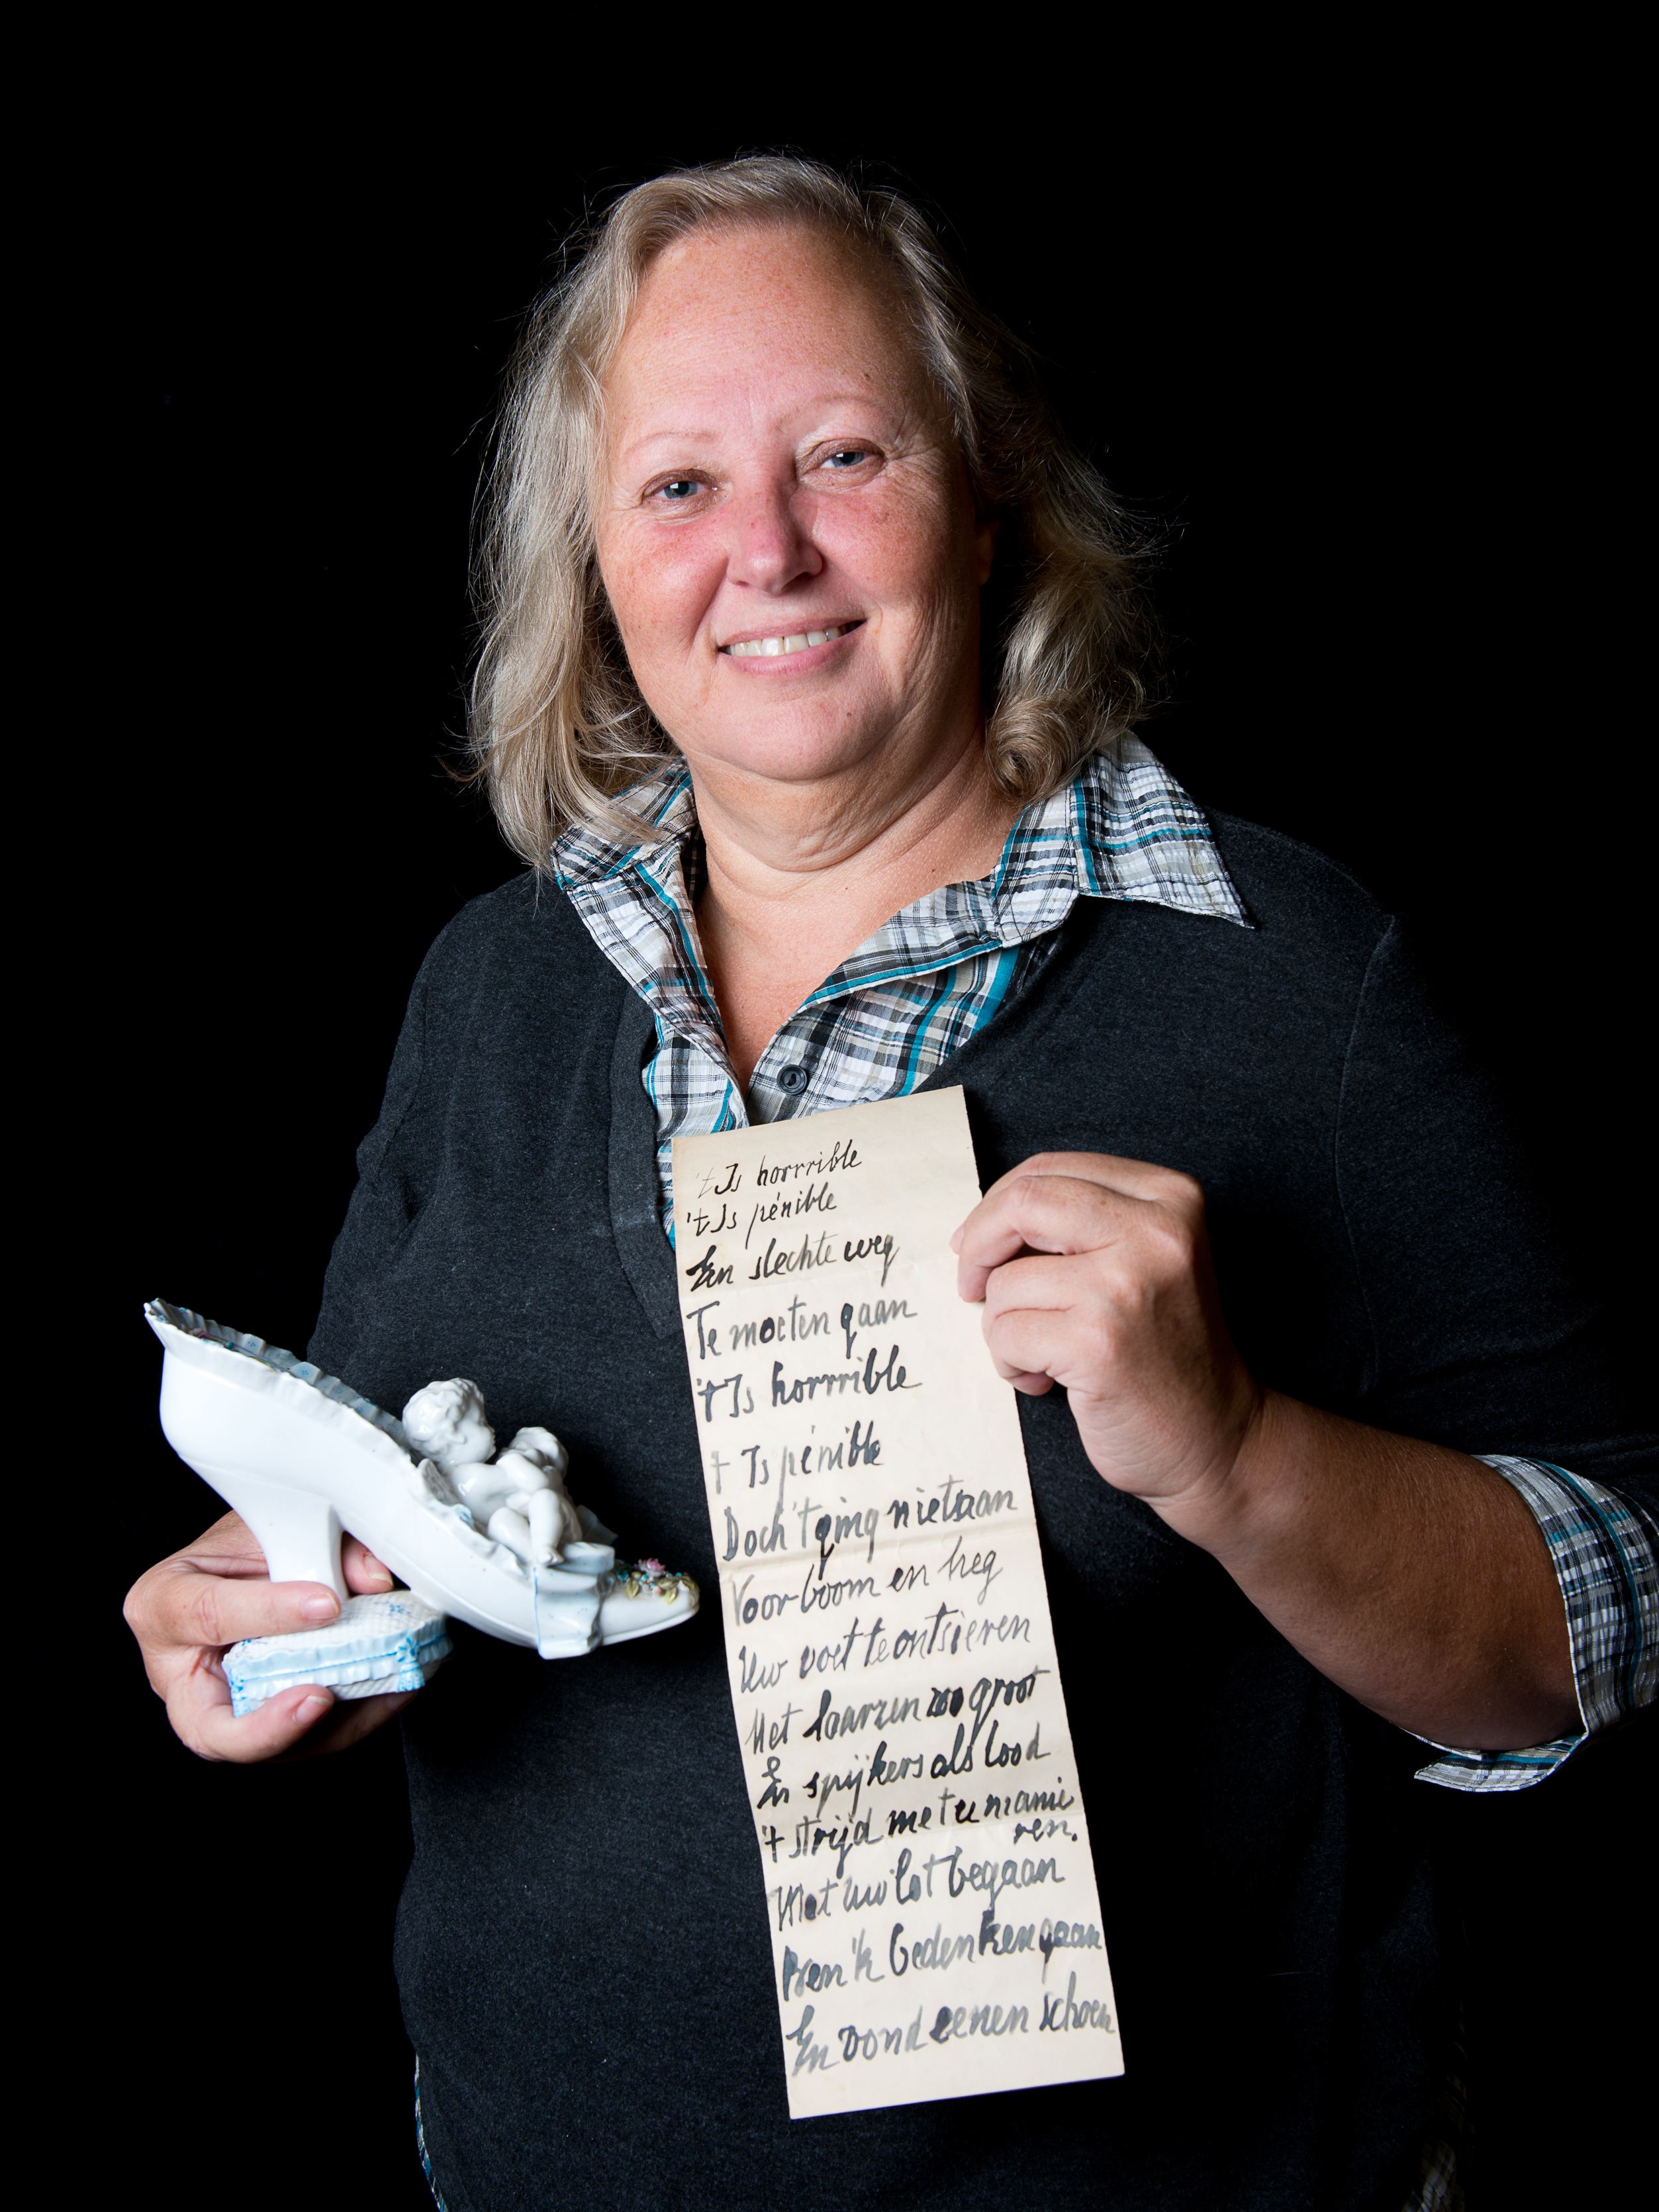 't Is horrrible
't Is pénible
En slechte weg
Te moeten gaan
't Is horrrible
't Is pénible
Doch 't ging niet aan
Voor boom en heg
Uw voet te ontsieren
Met laarzen zoo groot
En spijkers als lood
't strijd met uw manie
ren.
Met uw lot begaan
Ben 'k bedenken gaan
En vond eenen schoen